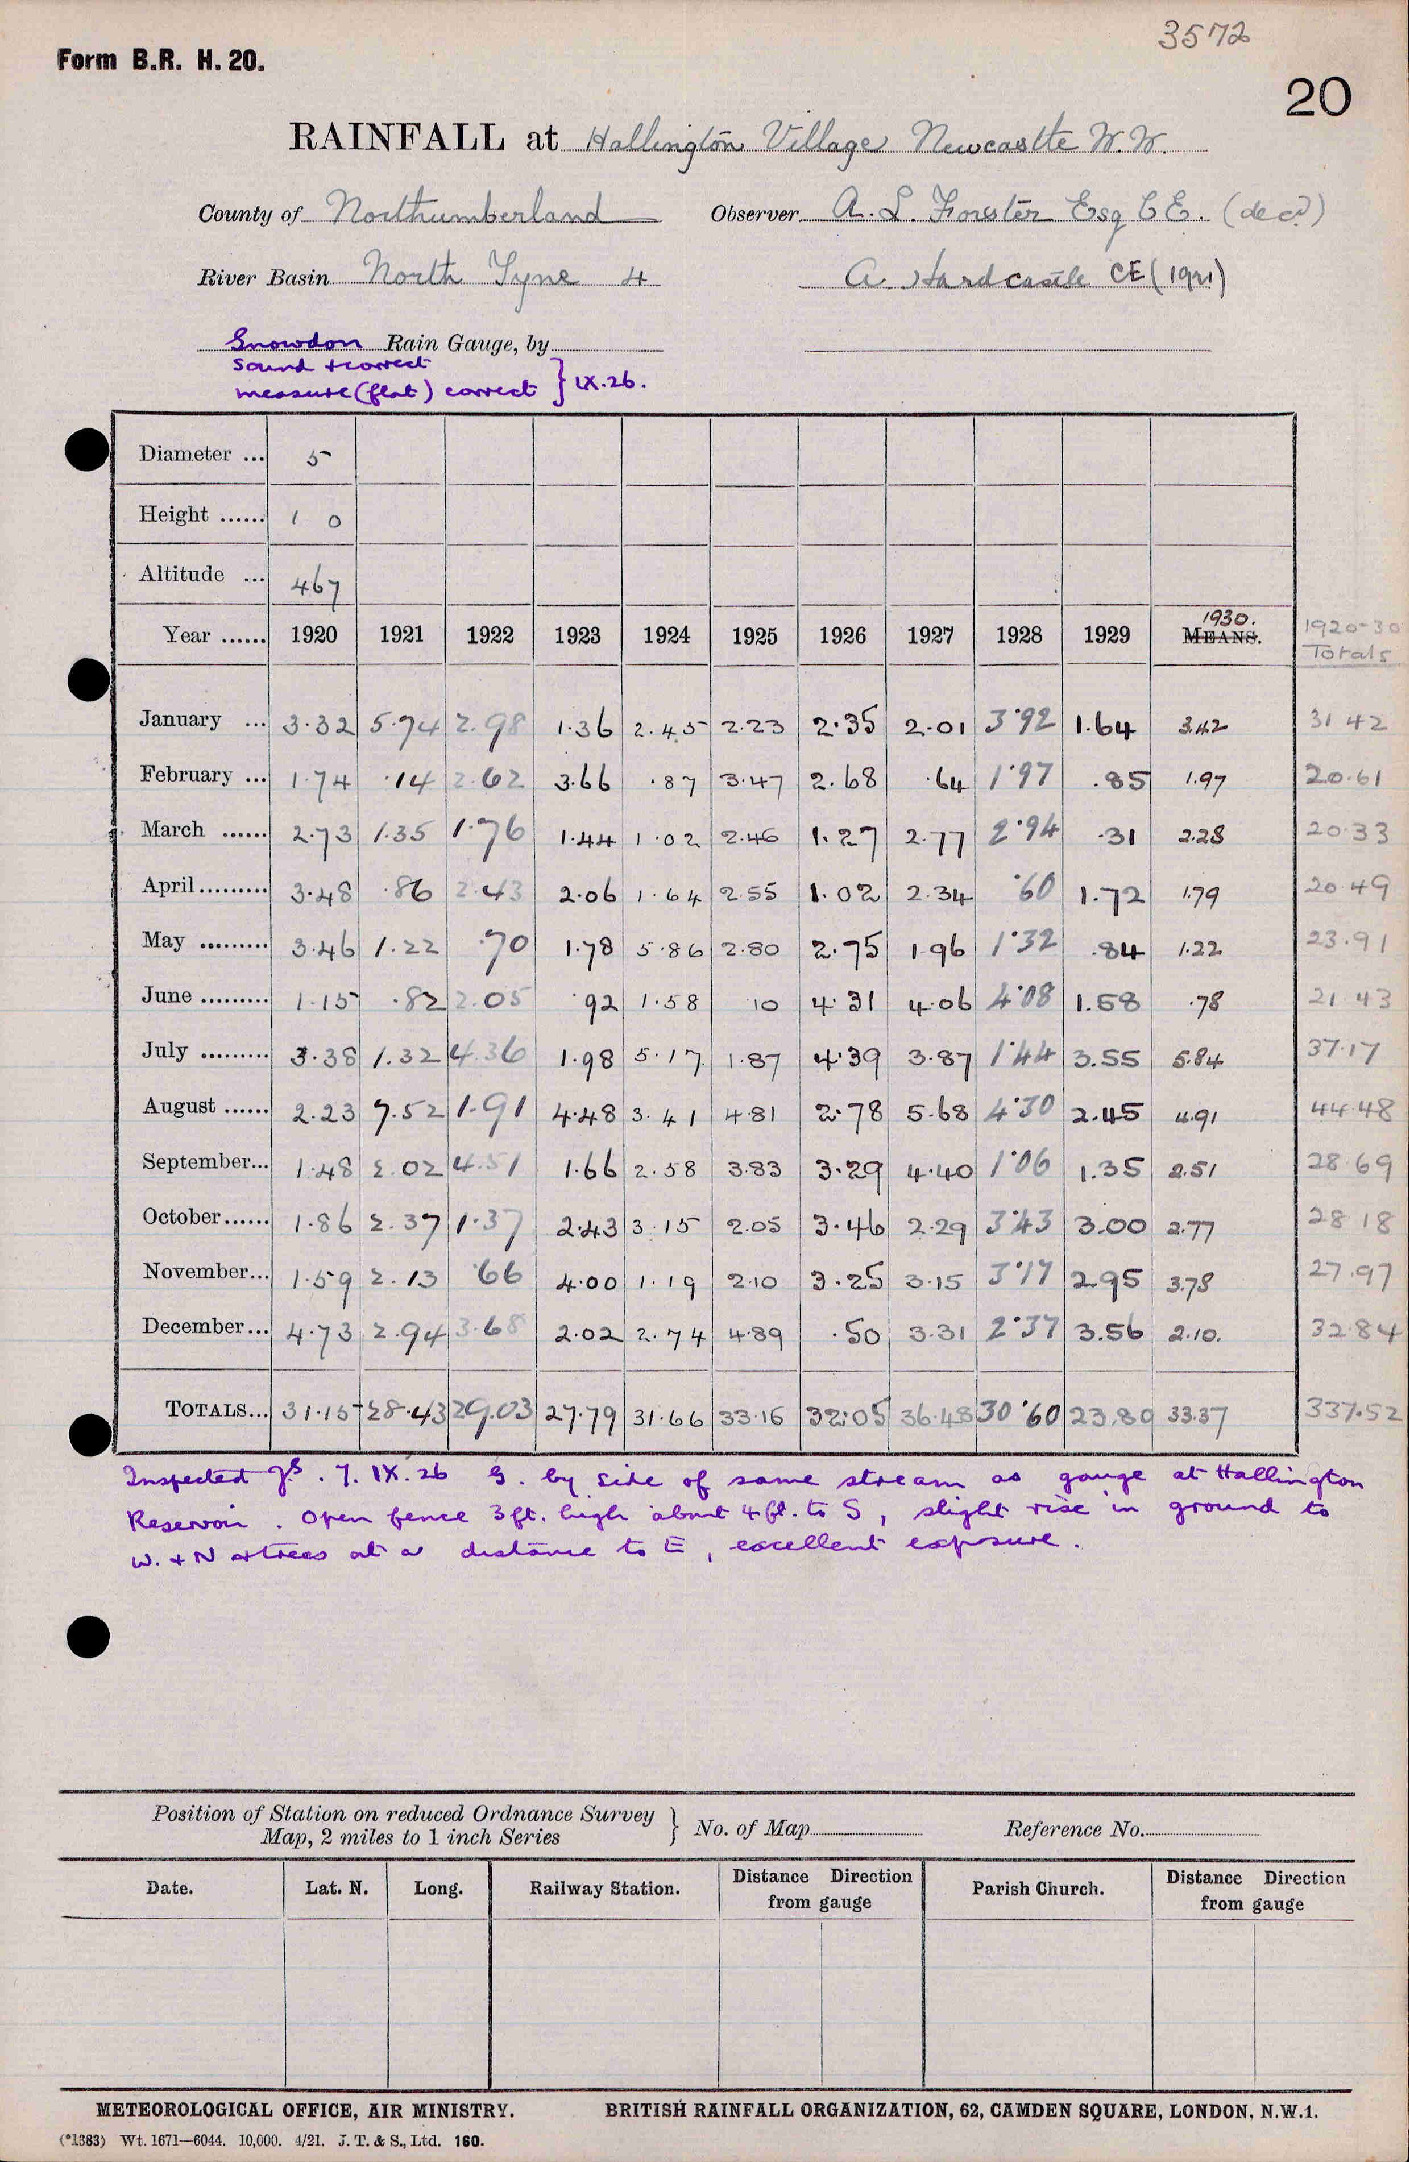 3572
Form B.R. H. 20.
20
RAINFALL at Hallington Village Newcastle W.W.
County of Northumberland Observer A. L. Forster Esq C E. (decd)
River Basin North Tyne 4 A. Hardcastle CE (1921)
Snowdon Rain Gauge, by
Sound + correct
measure (flat) correct } IX.26.
Diameter ... 5
Height ...... 1 0
Altitude ... 467
Year ...... 1920 1921 1922 1923 1924 1925 1926 1927 1928 1929 1930. MEANS. 1920-30 Totals
January ... 3.32 5.74 2.98 1.36 2.45 2.23 2.35 2.01 3.92 1.64 3.42 31 42
February ... 1.74 .14 2.62 3.66 .87 3.47 2.68 .64 1.97 .85 1.97 20.61
March ...... 2.73 1.35 1.76 1.44 1.02 2.46 1.27 2.77 2.94 .31 2.28 20 33
April......... 3.48 .86 2.43 2.06 1.64 2.55 1.02 2.34 .60 1.72 1.79 20.49
May ......... 3.46 1.22 .70 1.78 5.86 2.80 2.75 1.96 1.32 .84 1.22 23.91
June ......... 1.15 .82 2.05 .92 1.58 10 4.31 4.06 4.08 1.58 .78 21 43
July ......... 3.38 1.32 4.36 1.98 5.17 1.87 4.39 3.87 1.44 3.55 5.84 37.17
August ...... 2.23 7.52 1.91 4.48 3.41 4.81 2.78 5.68 4.30 2.45 4.91 44.48
September... 1.48 2.02 4.51 1.66 2.58 3.83 3.29 4.40 1.06 1.35 2.51 28.69
October...... 1.86 2.37 1.37 2.43 3.15 2.05 3.46 2.29 3.43 3.00 2.77 28 18
November... 1.59 2.13 .66 4.00 1.19 2.10 3.25 3.15 3.17 2.95 3.78 27.97
December... 4.73 2.94 3.68 2.02 2.74 4.89 .50 3.31 2.37 3.56 2.10. 32.84
TOTALS... 31.15 28.43 29.03 27.79 31.66 33.16 32.05 36.48 30.60 23.80 33.37 337.52
Inspected . 7. IX. 26 G. by side of same stream as gauge at Hallington
Reservoir . Open fence 3 ft. high about 4 ft. to S, slight rise in ground to
W. + N + trees at a distance to E, excellent exposure.
Position of Station on reduced Ordnance Survey
Map, 2 miles to 1 inch Series } No. of Map Reference No.
Date. Lat. N. Long. Railway Station. Distance Direction from gauge Parish Church. Distance Direction from gauge
METEOROLOGICAL OFFICE, AIR MINISTRY. BRITISH RAINFALL ORGANIZATION, 62, CAMDEN SQUARE, LONDON, N.W.1.
(*1383) Wt. 1671—6044. 10,000. 4/21. J. T. & S., Ltd. 160.